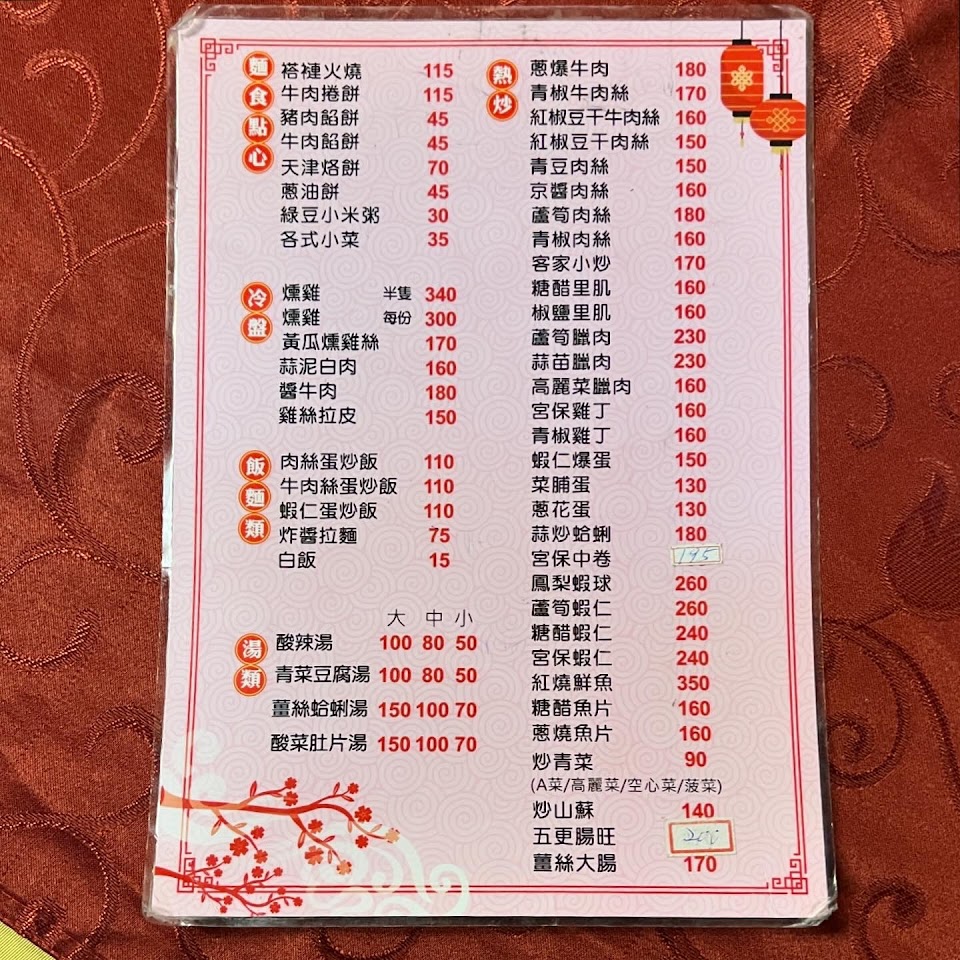 麵食點心
褡褳火燒 115
牛肉捲餅 115
豬肉餡餅 45
牛肉餡餅 45
天津烙餅 70
蔥油餅 45
綠豆小米粥 30
各式小菜 35
冷盤
燻雞 半隻 340
燻雞 每份 300
黃瓜燻雞絲 170
蒜泥白肉 160
醬牛肉 180
雞絲拉皮 150
飯麵類
肉絲蛋炒飯 110
牛肉絲蛋炒飯 110
蝦仁蛋炒飯 110
炸醬拉麵 75
白飯 15
大 中 小
湯類
酸辣湯 100 80 50
青菜豆腐湯 100 80 50
薑絲蛤蜊湯 150 100 70
酸菜肚片湯 150 100 70
熱炒
蔥爆牛肉 180
青椒牛肉絲 170
紅椒豆干牛肉絲 160
紅椒豆干肉絲 150
青豆肉絲 150
京醬肉絲 160
蘆筍肉絲 180
青椒肉絲 160
客家小炒 170
糖醋里肌 160
椒鹽里肌 160
蘆筍臘肉 230
蒜苗臘肉 230
高麗菜臘肉 160
宮保雞丁 160
青椒雞丁 160
蝦仁爆蛋 150
菜脯蛋 130
蔥花蛋 130
蒜炒蛤蜊 180
宮保中卷 195
鳳梨蝦球 260
蘆筍蝦仁 260
糖醋蝦仁 240
宮保蝦仁 240
紅燒鮮魚 350
糖醋魚片 160
蔥燒魚片 160
炒青菜 90
(A菜/高麗菜/空心菜/菠菜)
炒山蘇 140
五更腸旺 200
薑絲大腸 170